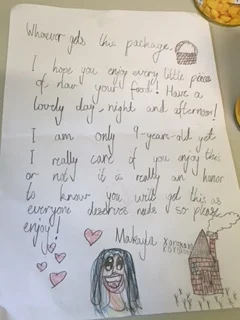 Whoever gets this package
I hope you enjoy every little piece
of now your food! Have a
lovely day, night and afternoon!
I am only 9-year-old yet
I really care if you enjoy this
or not it is really an honor
to know you will get this as
everyone deserves so please
enjoy!
Makayla